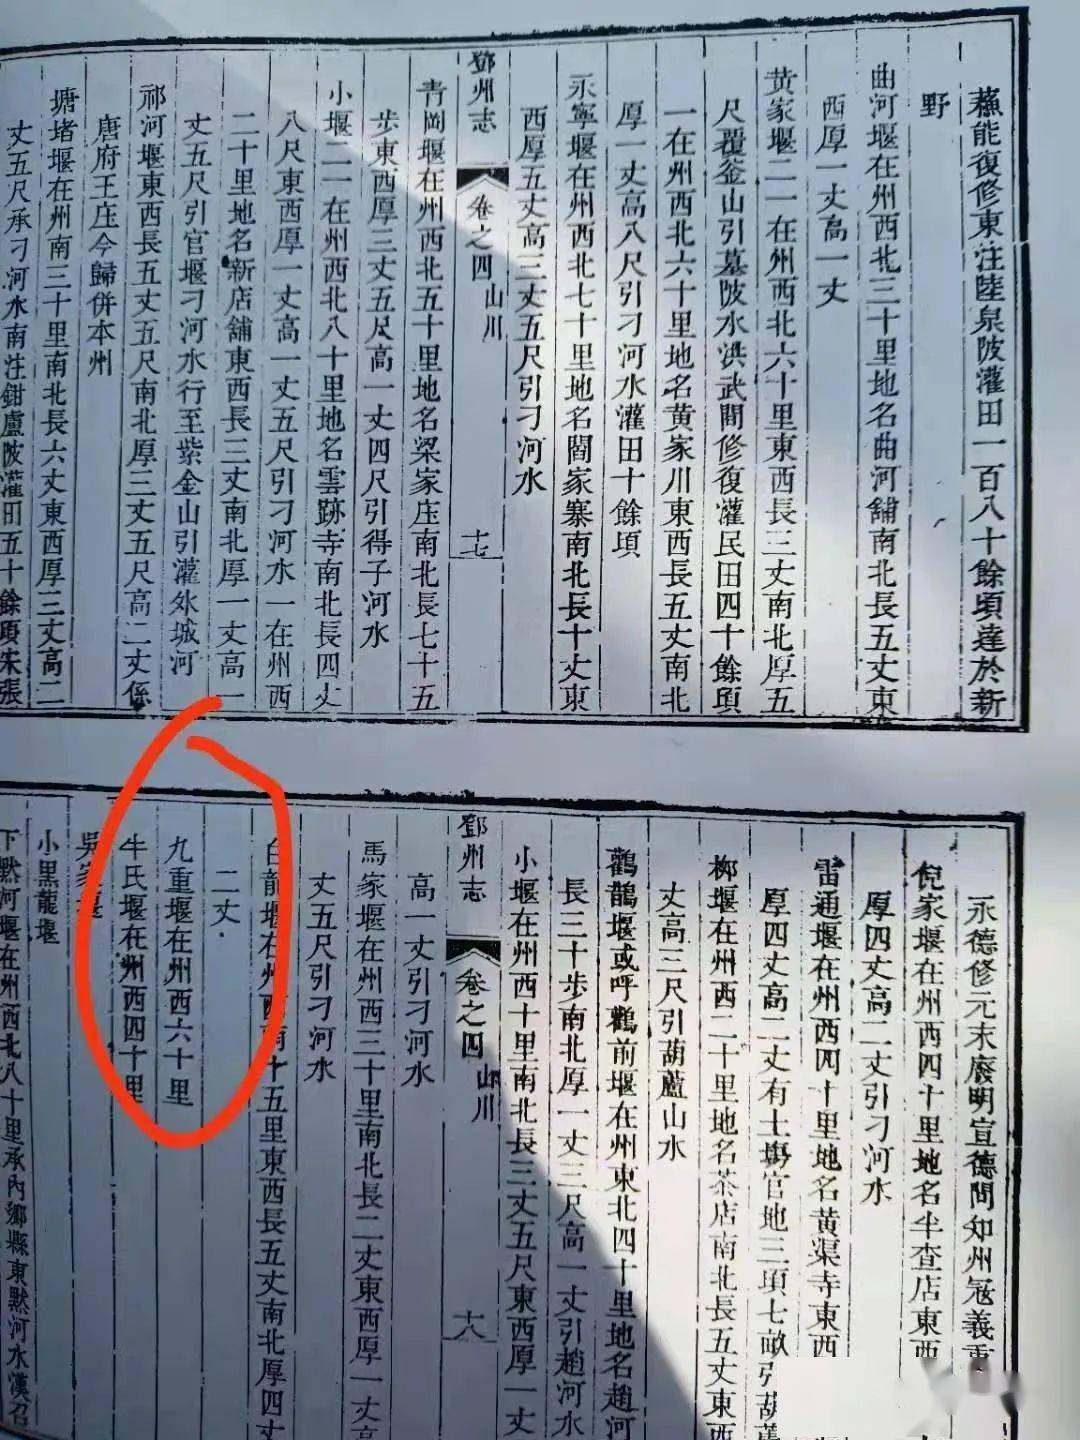 蕪能復修東注陸泉陂灌田一百八十餘頃達於新
野
曲河堰在州西北三十里地名曲河舖南北長五丈東
西厚一丈高一丈
黄家堰二一在州西北六十里東西長三丈南北厚五
尺覆釜山引墓陂水洪武間修復灌民田四十餘頃
一在州西北六十里地名黄家川東西長五丈南北
厚一丈高八尺引刁河水灌田十餘頃
永寧堰在州西北七十里地名閻家寨南北長十丈東
西厚五丈高三丈五尺引刁河水
鄧州志 卷之四 山川 十七
青岡堰在州西北五十里地名梁家庄南北長七十五
步東西厚三丈五尺高一丈四尺引得子河水
小堰二一在州西北八十里地名雲跡寺南北長四丈
八尺東西厚一丈高一丈五尺引刁河水一在州西
二十里地名新店舖東西長三丈南北厚一丈高一
丈五尺引官堰刁河水行至紫金山引灌外城河
祁河堰東西長五丈五尺南北厚三丈五尺高二丈係
唐府王庄今歸併本州
塘堵堰在州南三十里南北長六丈東西厚三丈高二
丈五尺承刁河水南注鉗盧陂灌田五十餘頃宋張
永德修元末廢明宣德間知州寇義重
倪家堰在州西四十里地名半查店東西
厚四丈高二丈引刁河水
雷通堰在州西四十里地名黄渠寺東西
厚四丈高二丈有土塲官地三頃七畝引葫蘆
柳堰在州西二十里地名茶店南北長五丈東西
丈高三尺引葫蘆山水
鸛鵲堰或呼鸛前堰在州東北四十里地名趙河
長三十步南北厚一丈三尺高一丈引趙河水
小堰在州西十里南北長三丈五尺東西厚一丈
鄧州志 卷之四 山川 十八
高一丈引刁河水
馬家堰在州西三十里南北長二丈東西厚一丈高
丈五尺引刁河水
白龍堰在州西南十五里東西長五丈南北厚四丈
二丈
九重堰在州西六十里
牛氏堰在州西四十里
吳家堰
小黑龍堰
下默河堰在州西北八十里承內鄉縣東默河水漢召